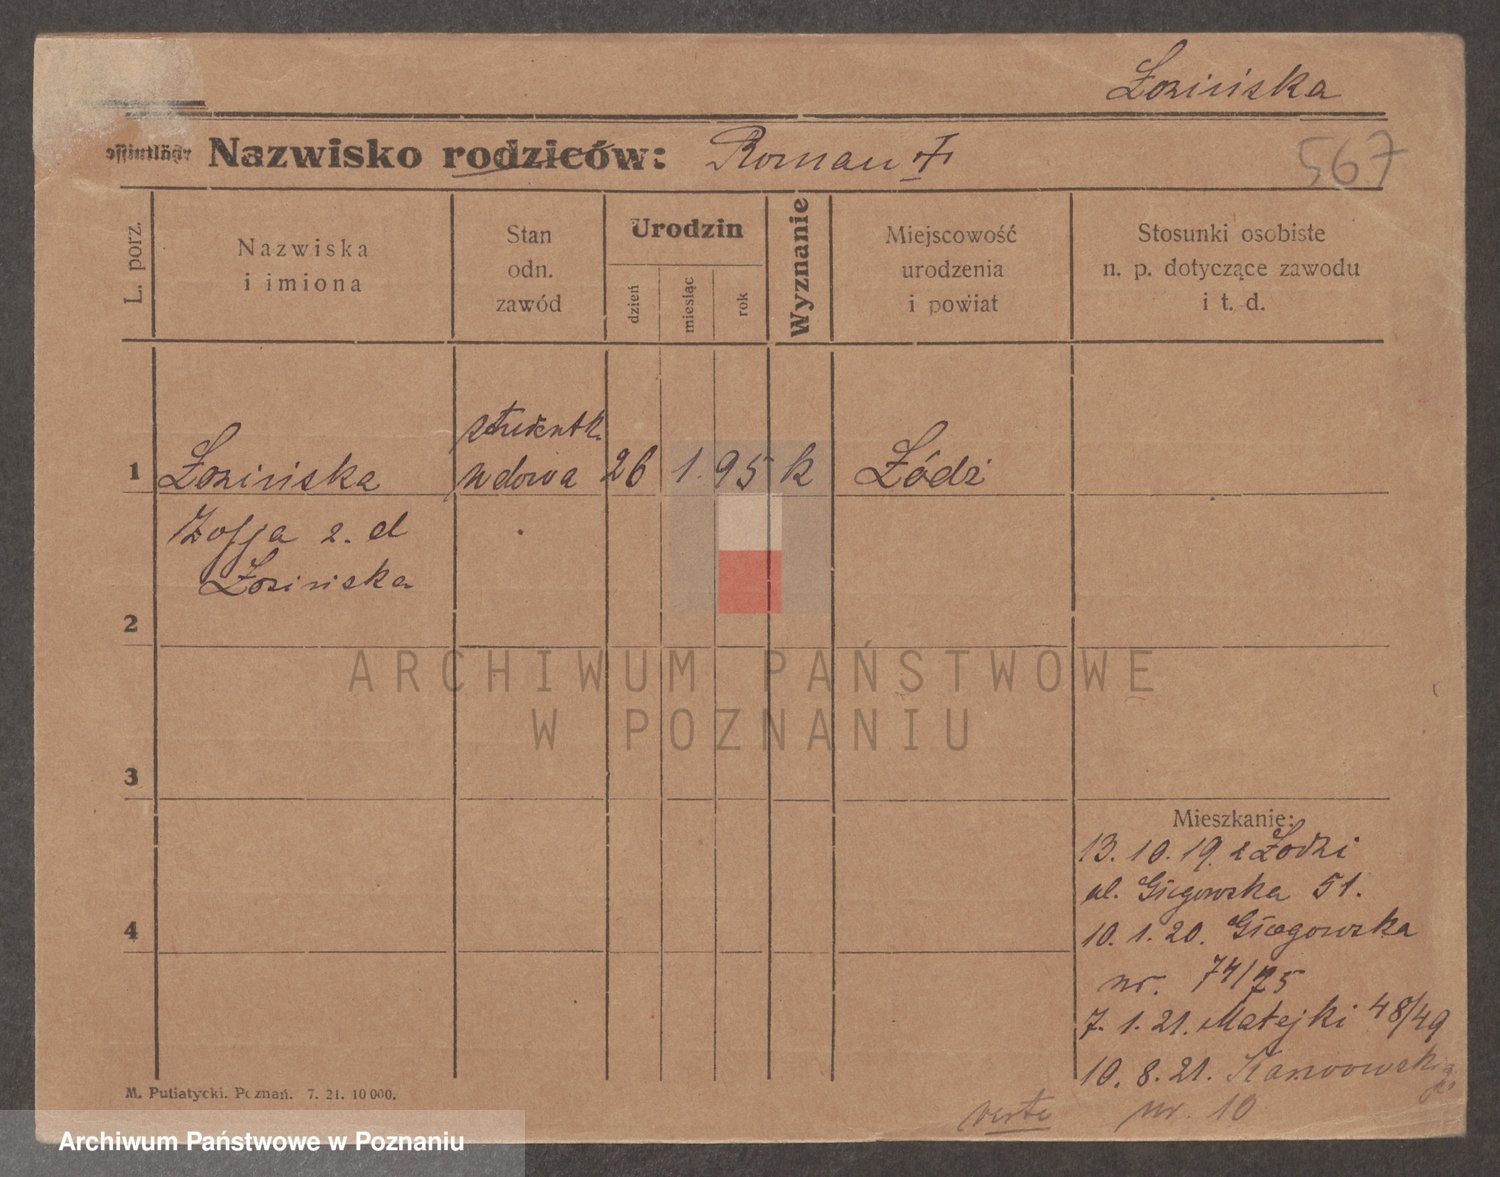 Łozińska
Nazwisko rodziców: Roman
567
L. porz.
Nazwiska
i imiona
Stan
odn.
zawód
Urodzin
dzień
miesiąc
rok
Wyznanie
Miejscowość
urodzenia
i powiat
Stosunki osobiste
n. p. dotyczące zawodu
i t. d.
studentk.
1 Łozińska wdowa 26 1. 95 k Łódź
Zofja z. d
Łozińska
2
3
4
Mieszkanie:
13. 10. 19. z Łodzi
ul. Głogowska 51.
10. 1. 20. Głogowska
nr. 74/75
7. 1. 21. Matejki 48/49
10. 8. 21.
nr. 10
verte
M. Putiatycki. Poznań. 7. 21. 10 000.
ARCHIWUM PAŃSTWOWE
W POZNANIU
Archiwum Państwowe w Poznaniu